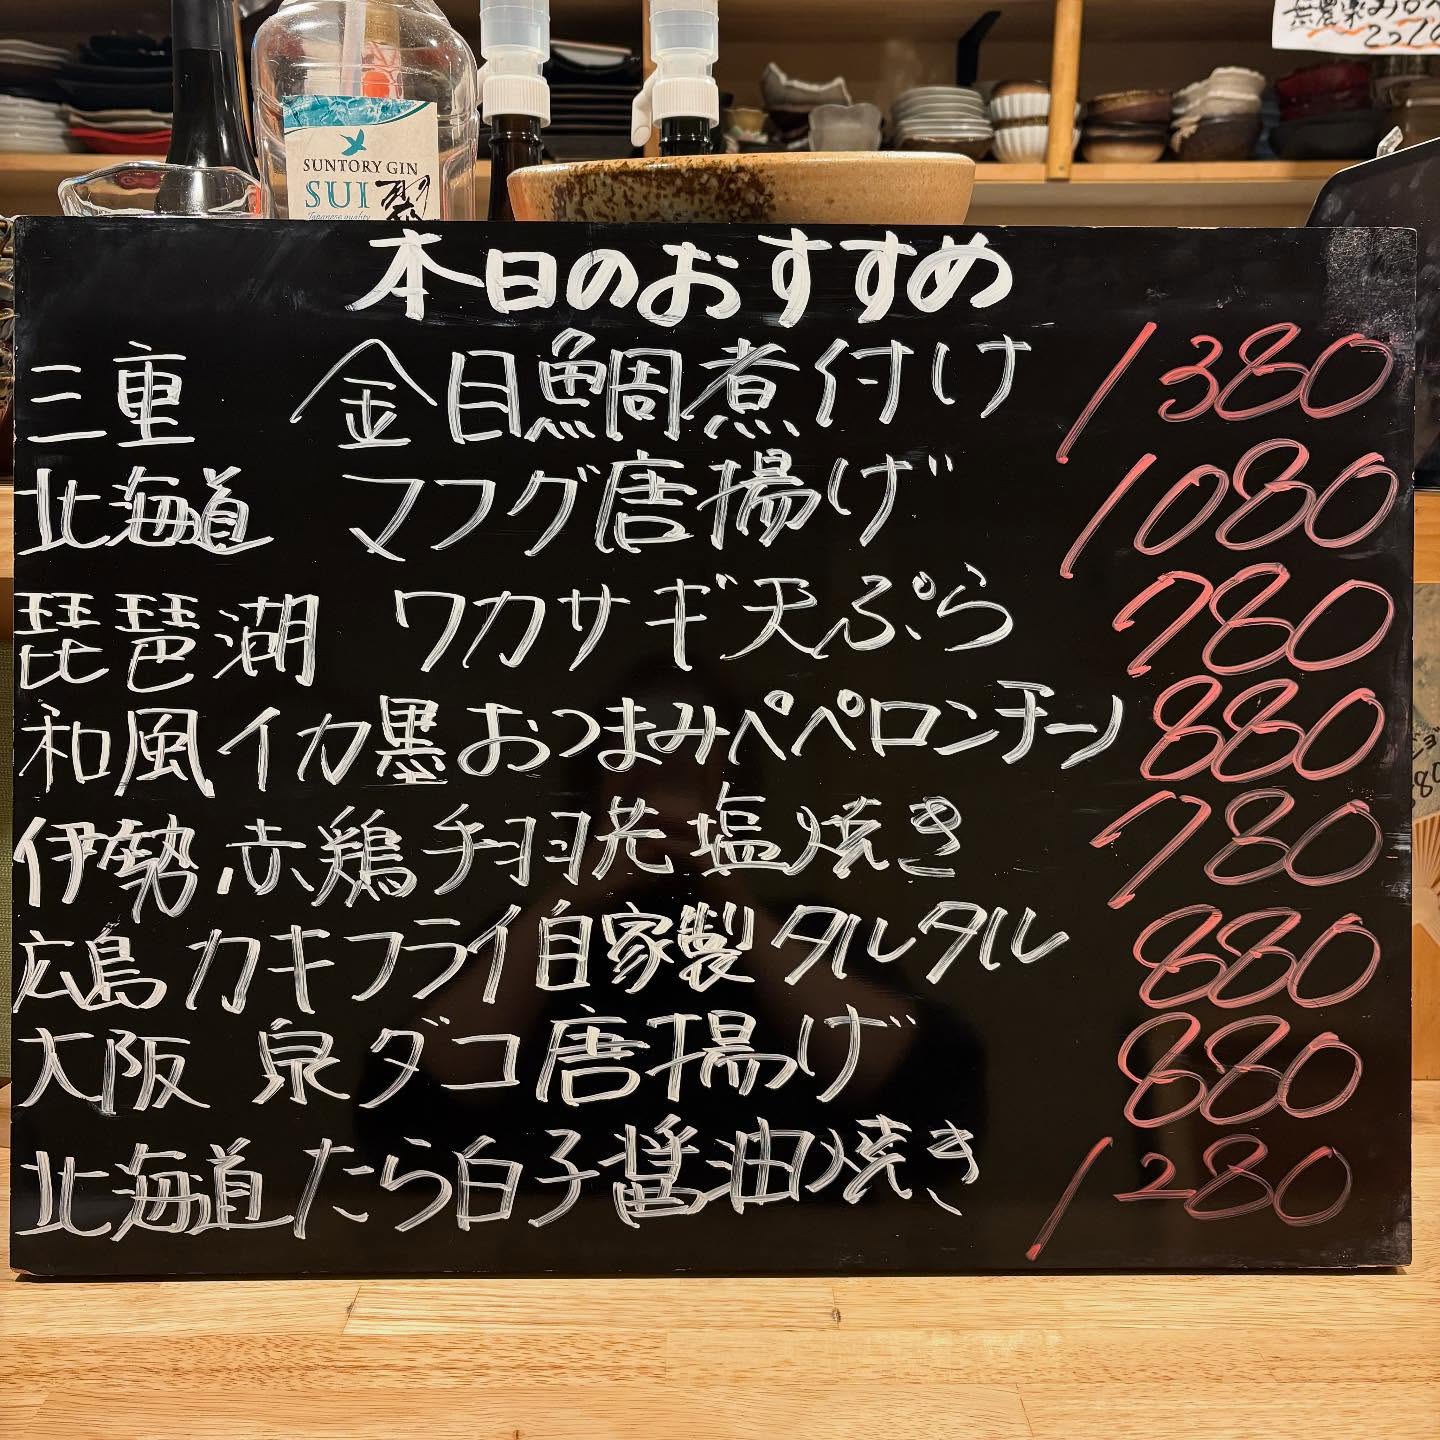 SUNTORY GIN
SUI 翠
Japanese quality
本日のおすすめ
三重 金目鯛煮付け 1380
北海道 マフグ唐揚げ 1080
琵琶湖 ワカサギ天ぷら 780
和風イカ墨おつまみペペロンチーノ 880
伊勢赤鶏手羽先塩焼き 780
広島カキフライ自家製タルタル 880
大阪 泉ダコ唐揚げ 880
北海道たら白子醤油焼き 1280